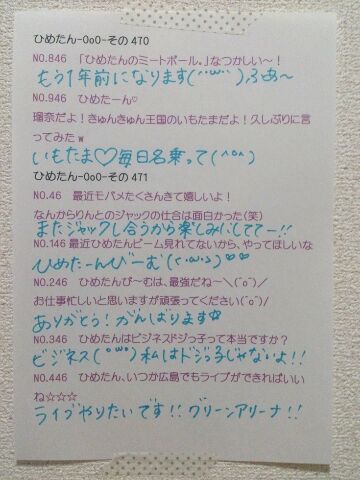 ひめたん-OoO-その 470
NO.846 「ひめたんのミートボール。」なつかしい～！
もう1年前になります(´･ω･`)ふぁ～
NO.946 ひめたーん♡
瑠奈だよ！きゅんきゅん王国のいもたまだよ！久しぶりに言
ってみたw
いもたま♡毎日名乗って(^o^)
ひめたん-OoO-その 471
NO.46 最近モバメたくさんきて嬉しいよ！
なんからりんとのジャックの仕合は面白かった(笑)
またジャックし合うから楽しみにしててー!!
NO.146 最近ひめたんビーム見れてないから、やってほしいな
ひめたーんびーむ(<･ω･>)♡♡
NO.246 ひめたんび～むは、最強だね～＼(^o^)／
お仕事忙しいと思いますが頑張ってください(^o^)/
ありがとう！がんばります☆
NO.346 ひめたんはビジネスドジっ子って本当ですか？
ビジネス(°ω°)私はドジっ子じゃないよ!!
NO.446 ひめたん、いつか広島でもライブができればいい
ね☆☆☆
ライブやりたいです!! グリーンアリーナ!!